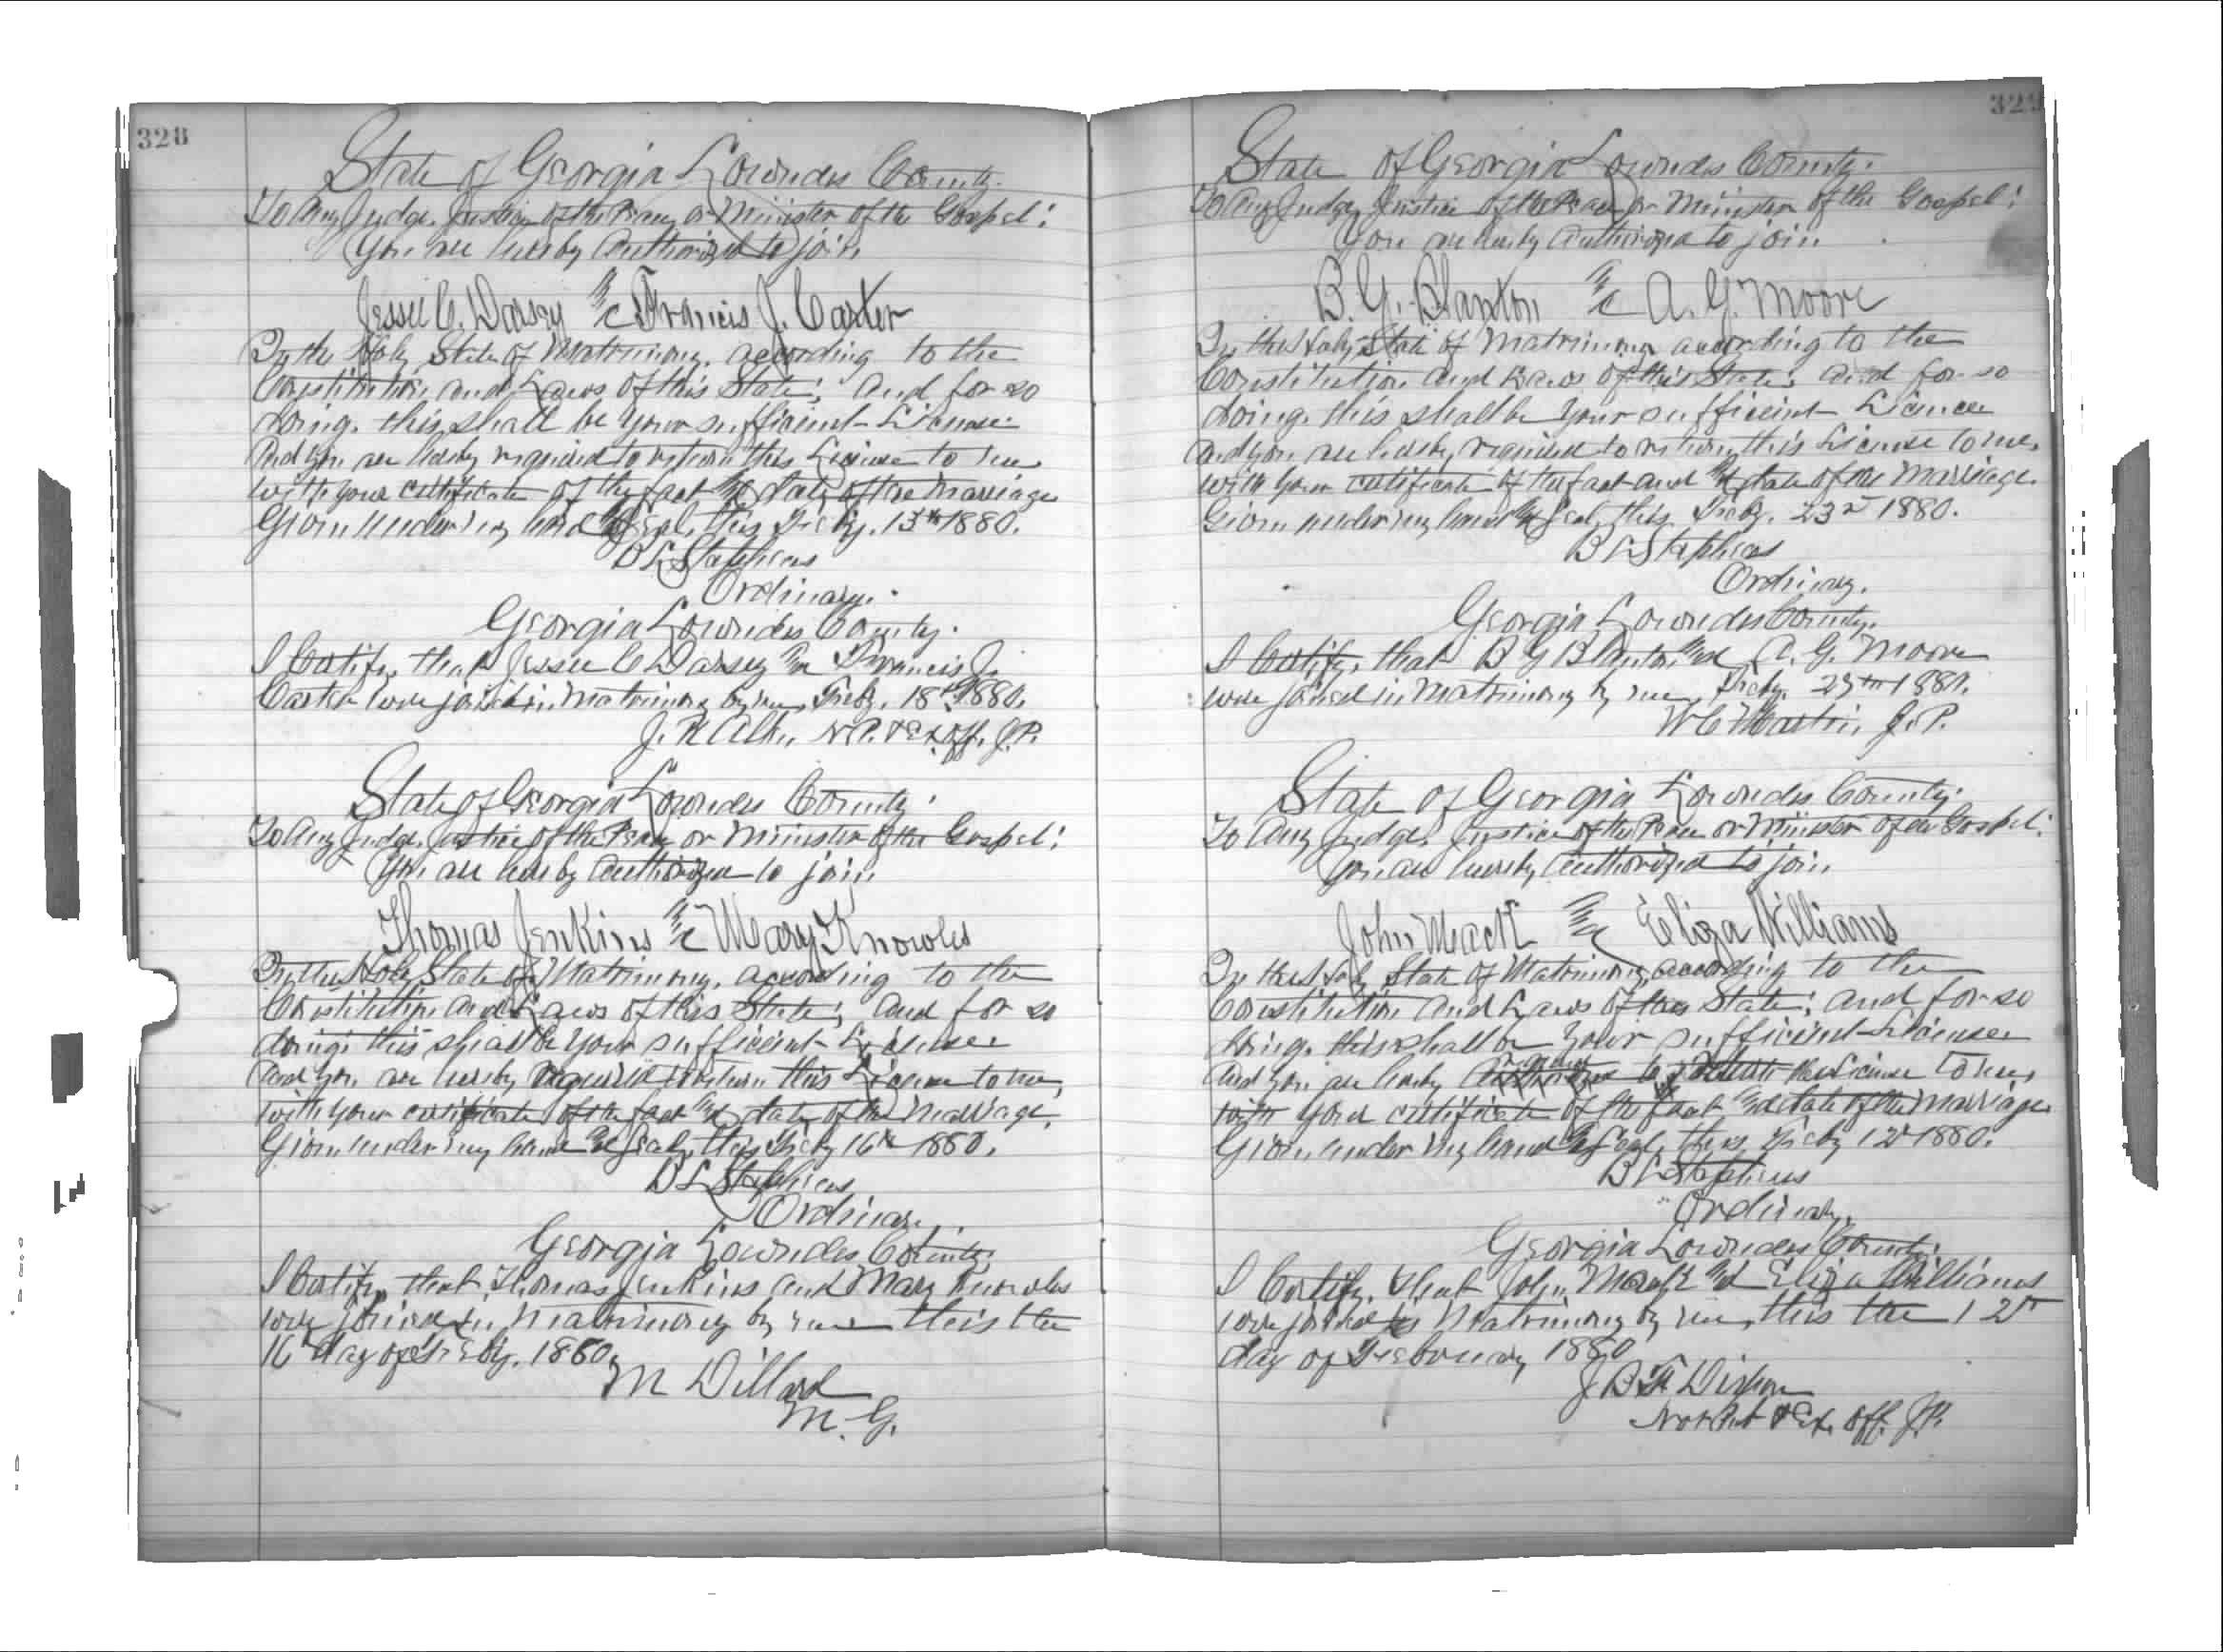 328
State of Georgia Lowndes County.
To Any Judge, Justice of the Peace or Minister of the Gospel:
You are hereby Authorized to join
Jesse C. Dorsey & Francis J. Carter
In the Holy State of Matrimony, according to the
Constitution and Laws of this State; And for so
doing, this shall be your sufficient License
And you are hereby required to return this License to me
with your certificate of the fact & date of the Marriage
Given under my hand & Seal, this Feby. 13th 1880.
B L Stephens
Ordinary.
Georgia Lowndes County.
I Certify, that Jesse C Dorsey & Francis J.
Carter were joined in Matrimony by me, Feby. 18th 1880.
J. R N.P. & Ex. off. J.P.
State of Georgia Lowndes County.
To Any Judge, Justice of the Peace or Minister of the Gospel:
You are hereby Authorized to join
Thomas Jenkins & Mary Knowles
In the Holy State of Matrimony, according to the
Constitution and Laws of this State; and for so
doing, this shall be your sufficient License
And you are hereby required to return this License to me,
with your certificate of the fact & date of the Marriage,
Given under my hand & Seal, this Feby 16th 1880.
B L Stephens
Ordinary.
Georgia Lowndes County.
I Certify, that Thomas Jenkins and Mary Knowles
were joined in Matrimony by me this the
16th day of Feby. 1880.
M Dillard
M. G.
329
State of Georgia Lowndes County.
To Any Judge, Justice of the Peace or Minister of the Gospel:
You are hereby Authorized to join
B. G. Blanton & A. G. Moore
In the Holy State of Matrimony according to the
Constitution and Laws of this State; and for so
doing, this shall be your sufficient License
and you are hereby required to return this License to me,
with your certificate of the fact and the date of the Marriage.
Given under my hand & Seal, this Feby. 23d 1880.
B L Stephens
Ordinary.
Georgia Lowndes County.
I Certify, that B G Blanton & A. G. Moore
were joined in Matrimony by me, Feby. 25th 1880.
W C J. P.
State of Georgia Lowndes County.
To Any Judge, Justice of the Peace or Minister of the Gospel:
You are hereby Authorized to join
John Mack & Eliza Williams
In the Holy State of Matrimony, according to the
Constitution and Laws of this State; and for so
doing, this shall be your sufficient License
And you are hereby required to return this License to me,
with your certificate of the fact & date of the Marriage
Given under my hand & Seal, this Feby 12th 1880.
B L Stephens
Ordinary.
Georgia Lowndes County.
I Certify, that John Mack & Eliza Williams
were joined in Matrimony by me, this the 12th
day of February 1880
J B F
Not Pub & Ex. off. J.P.